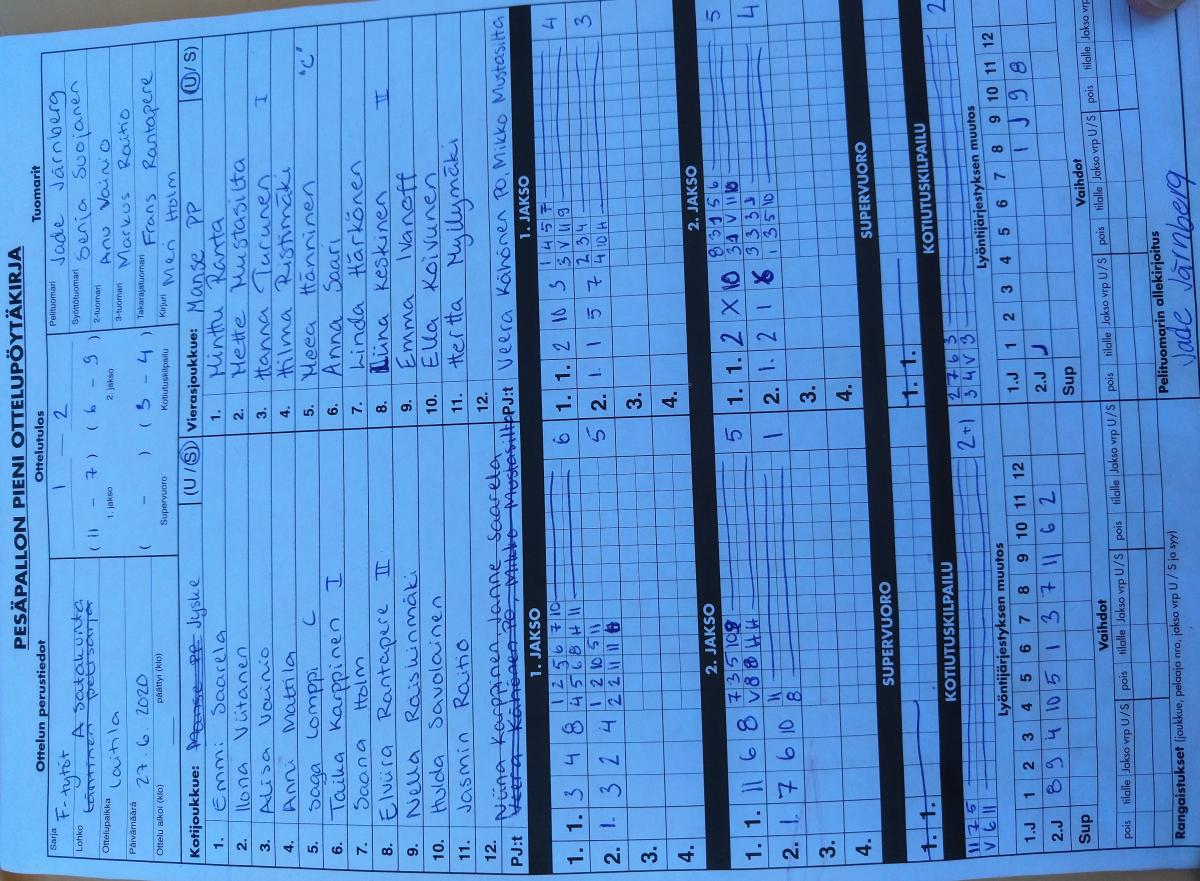 PESÄPALLON PIENI OTTELUPÖYTÄKIRJA
Ottelun perustiedot
Sarja F-tytöt
Lohko A Satakunta
Läntinen peltsarja
Ottelupaikka Laitila
Päivämäärä 27.6.2020
Ottelu alkoi (klo) päättyi (klo)
Ottelutulos
1 — 2
( 11 - 7 ) ( 6 - 9 )
1. jakso 2. jakso
( - ) ( 3 - 4 )
Supervuoro Kotiutuskilpailu
Tuomarit
Pelituomari Jade Järnberg
Syöttötuomari Senja Suojanen
2-tuomari Anu Vainio
3-tuomari Markus Raitio
Takarajatuomari Frans Rantapere
Kirjuri Meri Holm
Kotijoukkue: Manse PP Jyske (U/S)
1. Emmi Saarela
2. Ilona Viitanen
3. Alisa Vainio
4. Anni Mattila
5. Saga Lamppi C
6. Taika Karppinen I
7. Saana Holm
8. Elviira Rantapere II
9. Nella Raiskinmäki
10. Hulda Savolainen
11. Jasmin Raitio
12.
PJ:t Niina Karppinen, Janne Saarela
Veera Kähönen PO, Mikko Mustasilta
Vierasjoukkue: Manse PP (U/S)
1. Minttu Ranta
2. Mette Mustasilta
3. Hanna Tuinen I
4. Hilma Ristimäki
5. Meea Hänninen "C"
6. Anna Saari
7. Linda Härkönen
8. Niina Keskinen II
9. Emma Ivaneff
10. Ella Koivunen
11. Hertta Myllymäki
12.
PJ:t Veera Kähönen PO, Mikko Mustasilta
1. JAKSO
1. 1. 3 4 8 6
2. 1. 3 2 4 5
3.
4.
1. JAKSO
1. 1. 2 10 3 4
2. 1. 1 5 7 3
3.
4.
2. JAKSO
1. 1. 11 6 8 5
2. 1. 7 6 10 1
3.
4.
2. JAKSO
1. 1. 2 X 10 5
2. 1. 2 1 4
3.
4.
SUPERVUORO
1. 1.
SUPERVUORO
1. 1.
KOTIUTUSKILPAILU
11 7 5
V 6 11 2+1
KOTIUTUSKILPAILU
2 7 6 3
3 4 V 3 2
Lyöntijärjestyksen muutos
1 2 3 4 5 6 7 8 9 10 11 12
1.J
2.J 8 9 4 10 5 1 3 7 11 6 2
Sup
Lyöntijärjestyksen muutos
1 2 3 4 5 6 7 8 9 10 11 12
1.J 1 J 9 8
2.J J
Sup
Vaihdot
pois tilalle Jakso vrp U/S pois tilalle Jakso vrp U/S pois tilalle Jakso vrp U/S
Vaihdot
pois tilalle Jakso vrp U/S pois tilalle Jakso vrp U/S pois tilalle Jakso vrp
Rangaistukset (joukkue, pelaaja nro, jakso vrp U / S ja syy)
Pelituomarin allekirjoitus
Jade Järnberg